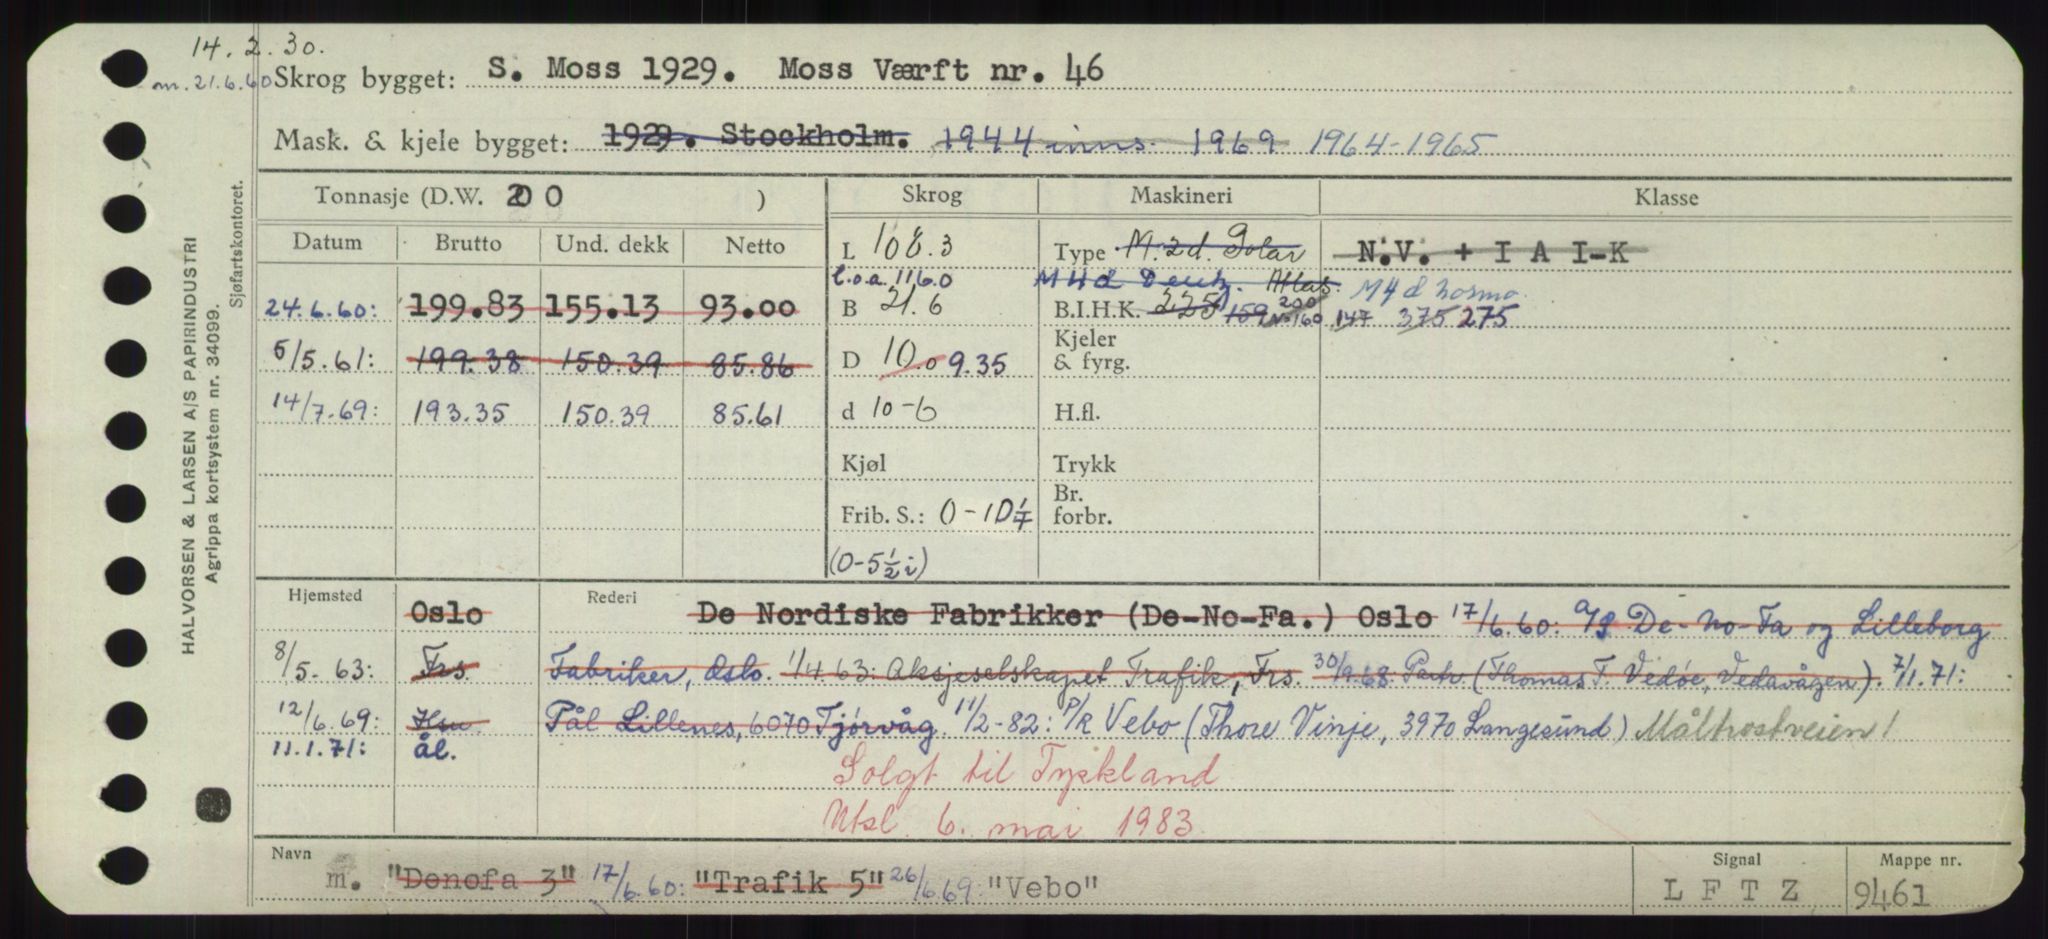 14.2.30.
m. 21.6.60 Skrog bygget: S. Moss 1929. Moss Værft nr. 46
Mask. & kjele bygget: 1929. Stockholm. 1944 inns. 1969 1964-1965
HALVORSEN & LARSEN A/S PAPIRINDUSTRI
Agrippa kortsystem nr. 34099.
Sjøfartskontoret.
Tonnasje (D.W. 200 ) Skrog Maskineri Klasse
Datum Brutto Und. dekk Netto
L 108.3 Type M. 2d. Polar N.V. + I A I-K
l.o.a. 116.0 M 4 d Deutz. Atlas. M 4 d
24.6.60: 199.83 155.13 93.00 B 21.6 B.I.H.K. 225 159 200 160 147 375 275
5/5.61: 199.38 150.39 85.86 D 10.0 9.35 Kjeler & fyrg.
14/7.69: 193.35 150.39 85.61 d 10-6 H.fl.
Kjøl Trykk
Frib. S.: 0-10 Br. forbr.
(0-5½ i)
Hjemsted Rederi
Oslo De Nordiske Fabrikker (De-No-Fa.) Oslo 17/6.60: A/S De-No-Fa og Lilleborg
8/5-63: Frs. Fabriker, Oslo. 1/4 63: Aksjeselskapet Trafik, Frs. 30/9.68 Partr. (Thomas T. Vedøe, Vedavågen). 7/1.71:
12/6.69: Hsu Pål Lillenes, 6070 Tjørvåg. 11/2-82: P/R Vebo (Thore Vinje, 3970 Langesund) Måltrostveien 1
11.1.71: ål.
Solgt til Tyskland
Utsl. 6. mai 1983.
Navn Signal Mappe nr.
m. "Denofa 3" 17/6.60: "Trafik 5" 26/6.69: "Vebo" L F T Z 9461